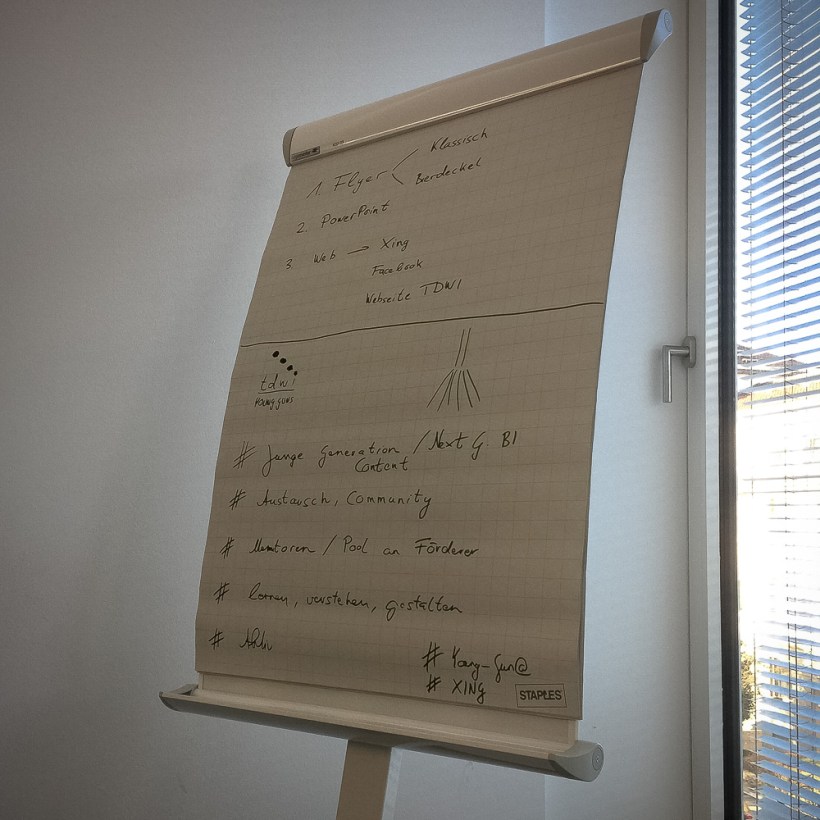 1. Flyer
Klassisch
Bierdeckel
2. PowerPoint
3. Web → Xing
Facebook
Webseite TDWI
tdwi
YOUNG GUNS
# Junge Generation / Next G. BI
Content
# Austausch, Community
# Mentoren / Pool an Förderer
# lernen, verstehen, gestalten
#
# Young-Gun@
# XING
STAPLES